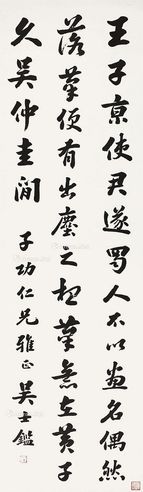 王子京使君遂蜀人不以画名偶然
落笔便有出尘之想笔意在黄子
久吴仲圭间
子功仁兄雅正 吴士鉴